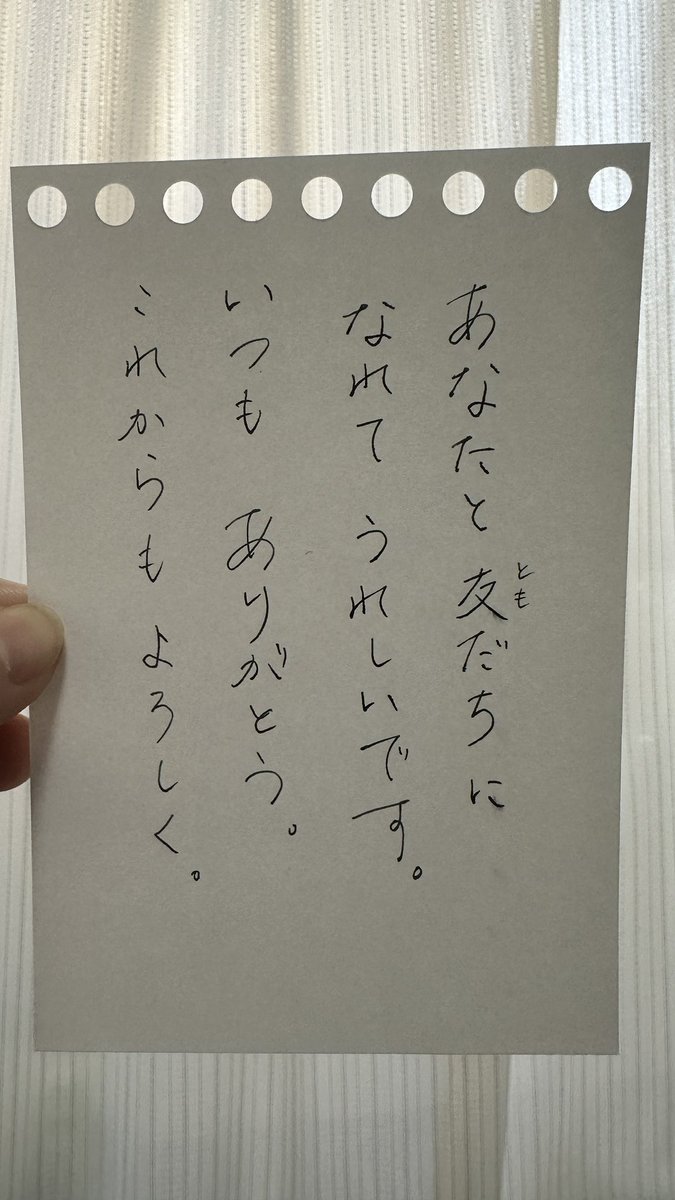 あなたと友だちに
とも
なれて うれしいです。
いつも ありがとう。
これからも よろしく。